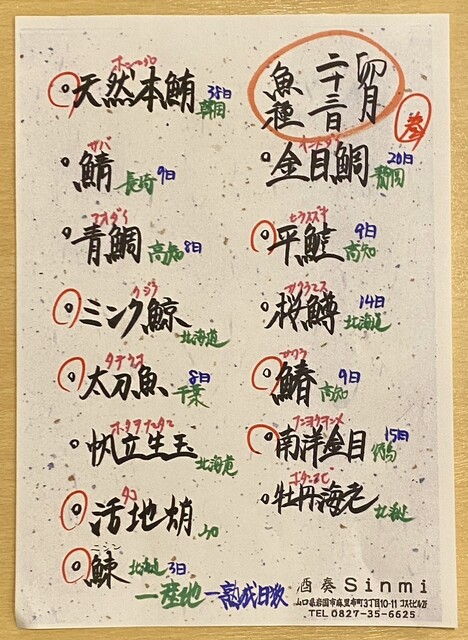 四月
二十三日
魚種
ホンマグロ
天然本鮪 38日 韓国
キンメダイ
金目鯛 20日 静岡
サバ
鯖 長崎 9日
ヒラスズキ
平鱸 9日 高知
アオダイ
青鯛 高知 8日
サクラマス
桜鱒 14日 北海道
クジラ
ミンク鯨 北海道
サワラ
鰆 9日 高知
タチウオ
太刀魚 8日 千葉
ナンヨウキンメ
南洋金目 15日
帆立生玉 北海道
ボタンエビ
牡丹海老 北海道
タコ
活地蛸 山口
ニシン
鰊 北海道 3日
一産地 一熟成日数
酒奏 Sinmi
山口県岩国市麻里布町3丁目10-11 コスモビル1F
TEL 0827-35-6625